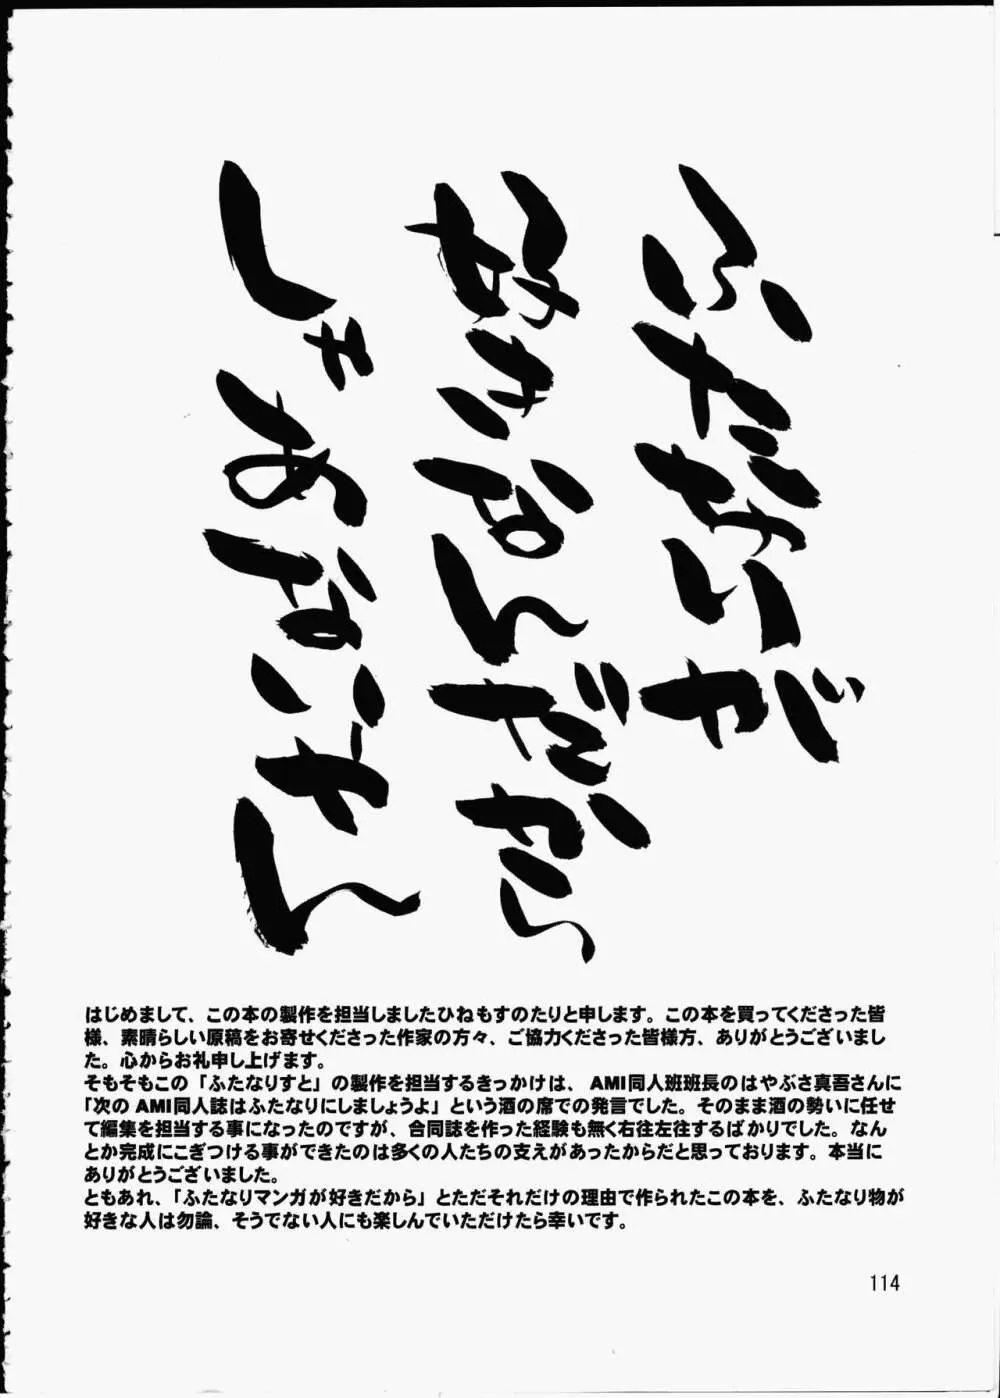 ふたなりが
好きなんだから
しゃあないやん
はじめまして、この本の製作を担当しましたひねもすのたりと申します。この本を買ってくださった皆
様、素晴らしい原稿をお寄せくださった作家の方々、ご協力くださった皆様方、ありがとうございまし
た。心からお礼申し上げます。
そもそもこの「ふたなりすと」の製作を担当するきっかけは、AMI同人班班長のはやぶさ真吾さんに
「次のAMI同人誌はふたなりにしましょうよ」という酒の席での発言でした。そのまま酒の勢いに任せ
て編集を担当する事になったのですが、合同誌を作った経験も無く右往左往するばかりでした。なん
とか完成にこぎつける事ができたのは多くの人たちの支えがあったからだと思っております。本当に
ありがとうございました。
ともあれ、「ふたなりマンガが好きだから」とただそれだけの理由で作られたこの本を、ふたなり物が
好きな人は勿論、そうでない人にも楽しんでいただけたら幸いです。
114